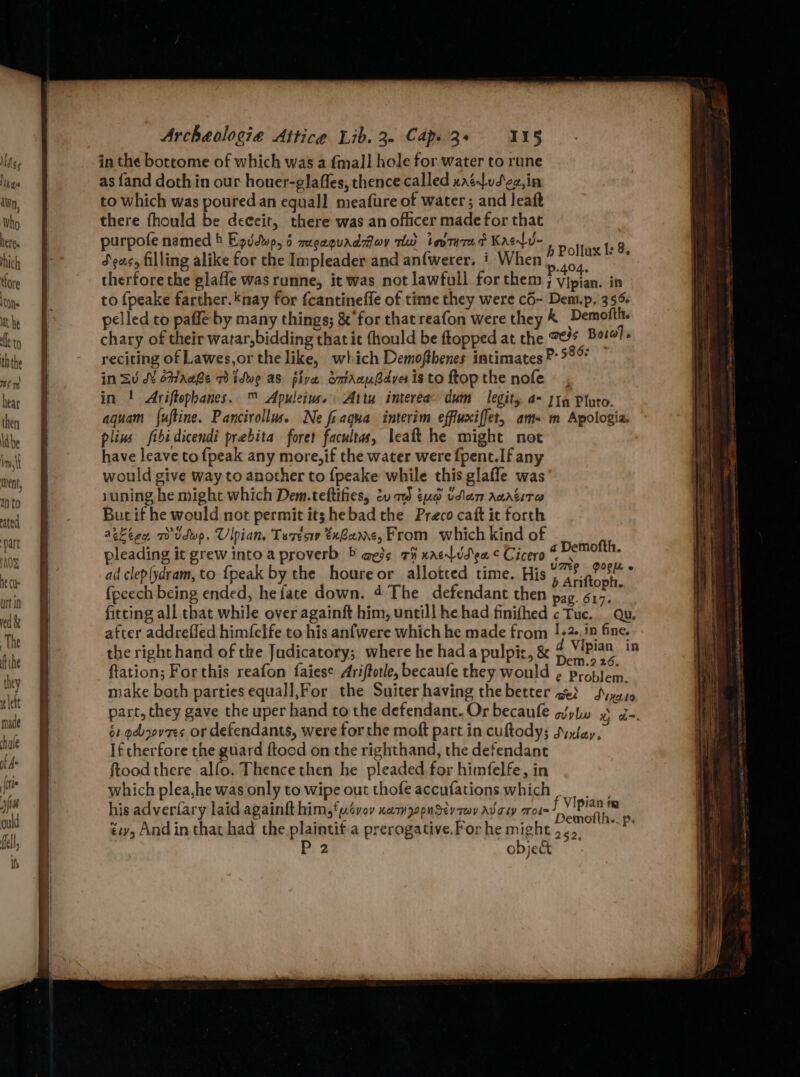 Archæologiæ Atticæ Lib. 3. Cap. 3. 115
in the bottome of which was a ſmall hole for water to rune
as ſand doth in our houer-glaſſes, thence called κλεψύδρα, in
to which was poured an equall meaſure of water; and leaſt
there ſhould be deceit, there was an officer made for that
purpoſe named h Ἐφύδωρ, ὁ παραφυλάττων τὴν ἰσότητα τ̃ Κλεψύ-
δρας, filling alike for the Impleader and anſwerer. i When
therfore the glaſſe was runne, it was not lawfull for them
to ſpeake farther. k nay for ſcantineſſe of time they were cō-
pelled to paſſe by many things; & for that reaſon were they
chary of their watar, bidding that it ſhould be ſtopped at the
reciting of Lawes, or the like, which Demoſthenes intimates
in Σὺ δὲ ἐπίλαβε τὸ ὕδωρ as ῥῖνα ἐπιλαμβάνειν is to ſtop the noſe
in l Ariſtophanes. m Apuleius. Attu interea dum legit, a-
quam ſuſtine. Pancirollus. Ne ſi aqua interim effluxiſſet, am-
plius ſibi dicendi præbita foret facultas, leaſt he might not
have leave to ſpeak any more, if the water were ſpent. If any
would give way to another to ſpeake while this glaſſe was
runing he might which Dem. teſtifies, ἐν τῷ ἐμῷ ὕδατι λαλείτω
But if he would not permit its he bad the Præco caſt it forth
ἐξέρα τὸ ὕδωρ. Ulpian. Τουτέστιν ἔκβαλλε, From which kind of
pleading it grew into a proverb b πρὸς τῇ κλεψύδρα c Cicero
ad clepſydram, to ſpeak by the houre or allotted time. His
ſpeech being ended, he ſate down. d The defendant then
fitting all that while over againſt him, untill he had finiſhed
after addreſſed himſelfe to his anſwere which he made from
the right hand of the Judicatory; where he had a pulpit, &
ſtation; For this reaſon ſaies e Ariſtotle, becauſe they would
make both parties equall, For the Suiter having the better
part, they gave the uper hand to the defendant. Or becauſe
οἱ φεύγοντες or defendants, were for the moſt part in cuſtody;
If therfore the guard ſtood on the righthand, the defendant
ſtood there alſo. Thence then he pleaded for himſelfe, in
which plea, he was only to wipe out thoſe accuſations which
his adverſary laid againſt him, f μόνον κατηγορηθέντων λύσιν ποι-
εῖν, And in that had the plaintif a prerogative. For he might
P 2 object
h Pollux l: 8.
p. 404.
i Vlpian. in
Dem. p. 356.
k Demoſth.
πρὸς Βοιωτ.
p. 586:
l In Pluto.
m Apologia.
a Demoſth.
ὑπὲρ φορμ.
b Ariſtoph.
pag. 617.
c Tuc. Qu.
l. 2. in fine.
d Vlpian in
Dem. 226.
e Problem.
f Vlpian in
Demoſth. p.
252.